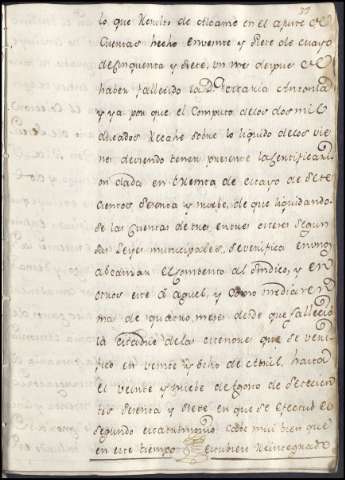 lo que Remito de Alcanse en el ajuste de
Cuentas hecho en veinte y siete de Mayo
de sinquenta y siete, un mes despues de
haber fallecido la D.ª Antonia
y ya por que el Computo de los dos mil
ducados Recahe sobre lo liquido de los vie
nes: deviendo tener presente la sertificasi
on dada en treinta de Mayo de sete
cientos sesenta y nuebe, de que liquidando
se las Cuentas de tres, en tres meses segun
las Leyes municipales, se verifica en uno
abcansar el al Sindico, y en
otros este á aquel, y como mediaren
mas de quatro meses desde que fallecio
la de las menores que se veri
fico en veinte y ocho de Abril, hasta
el veinte y nuebe de Agosto de setecien
tos sesenta y siete en que se efectuó el
segundo Matrimonio Cabe mui bien que
en este tiempo estubiese Reintegrado